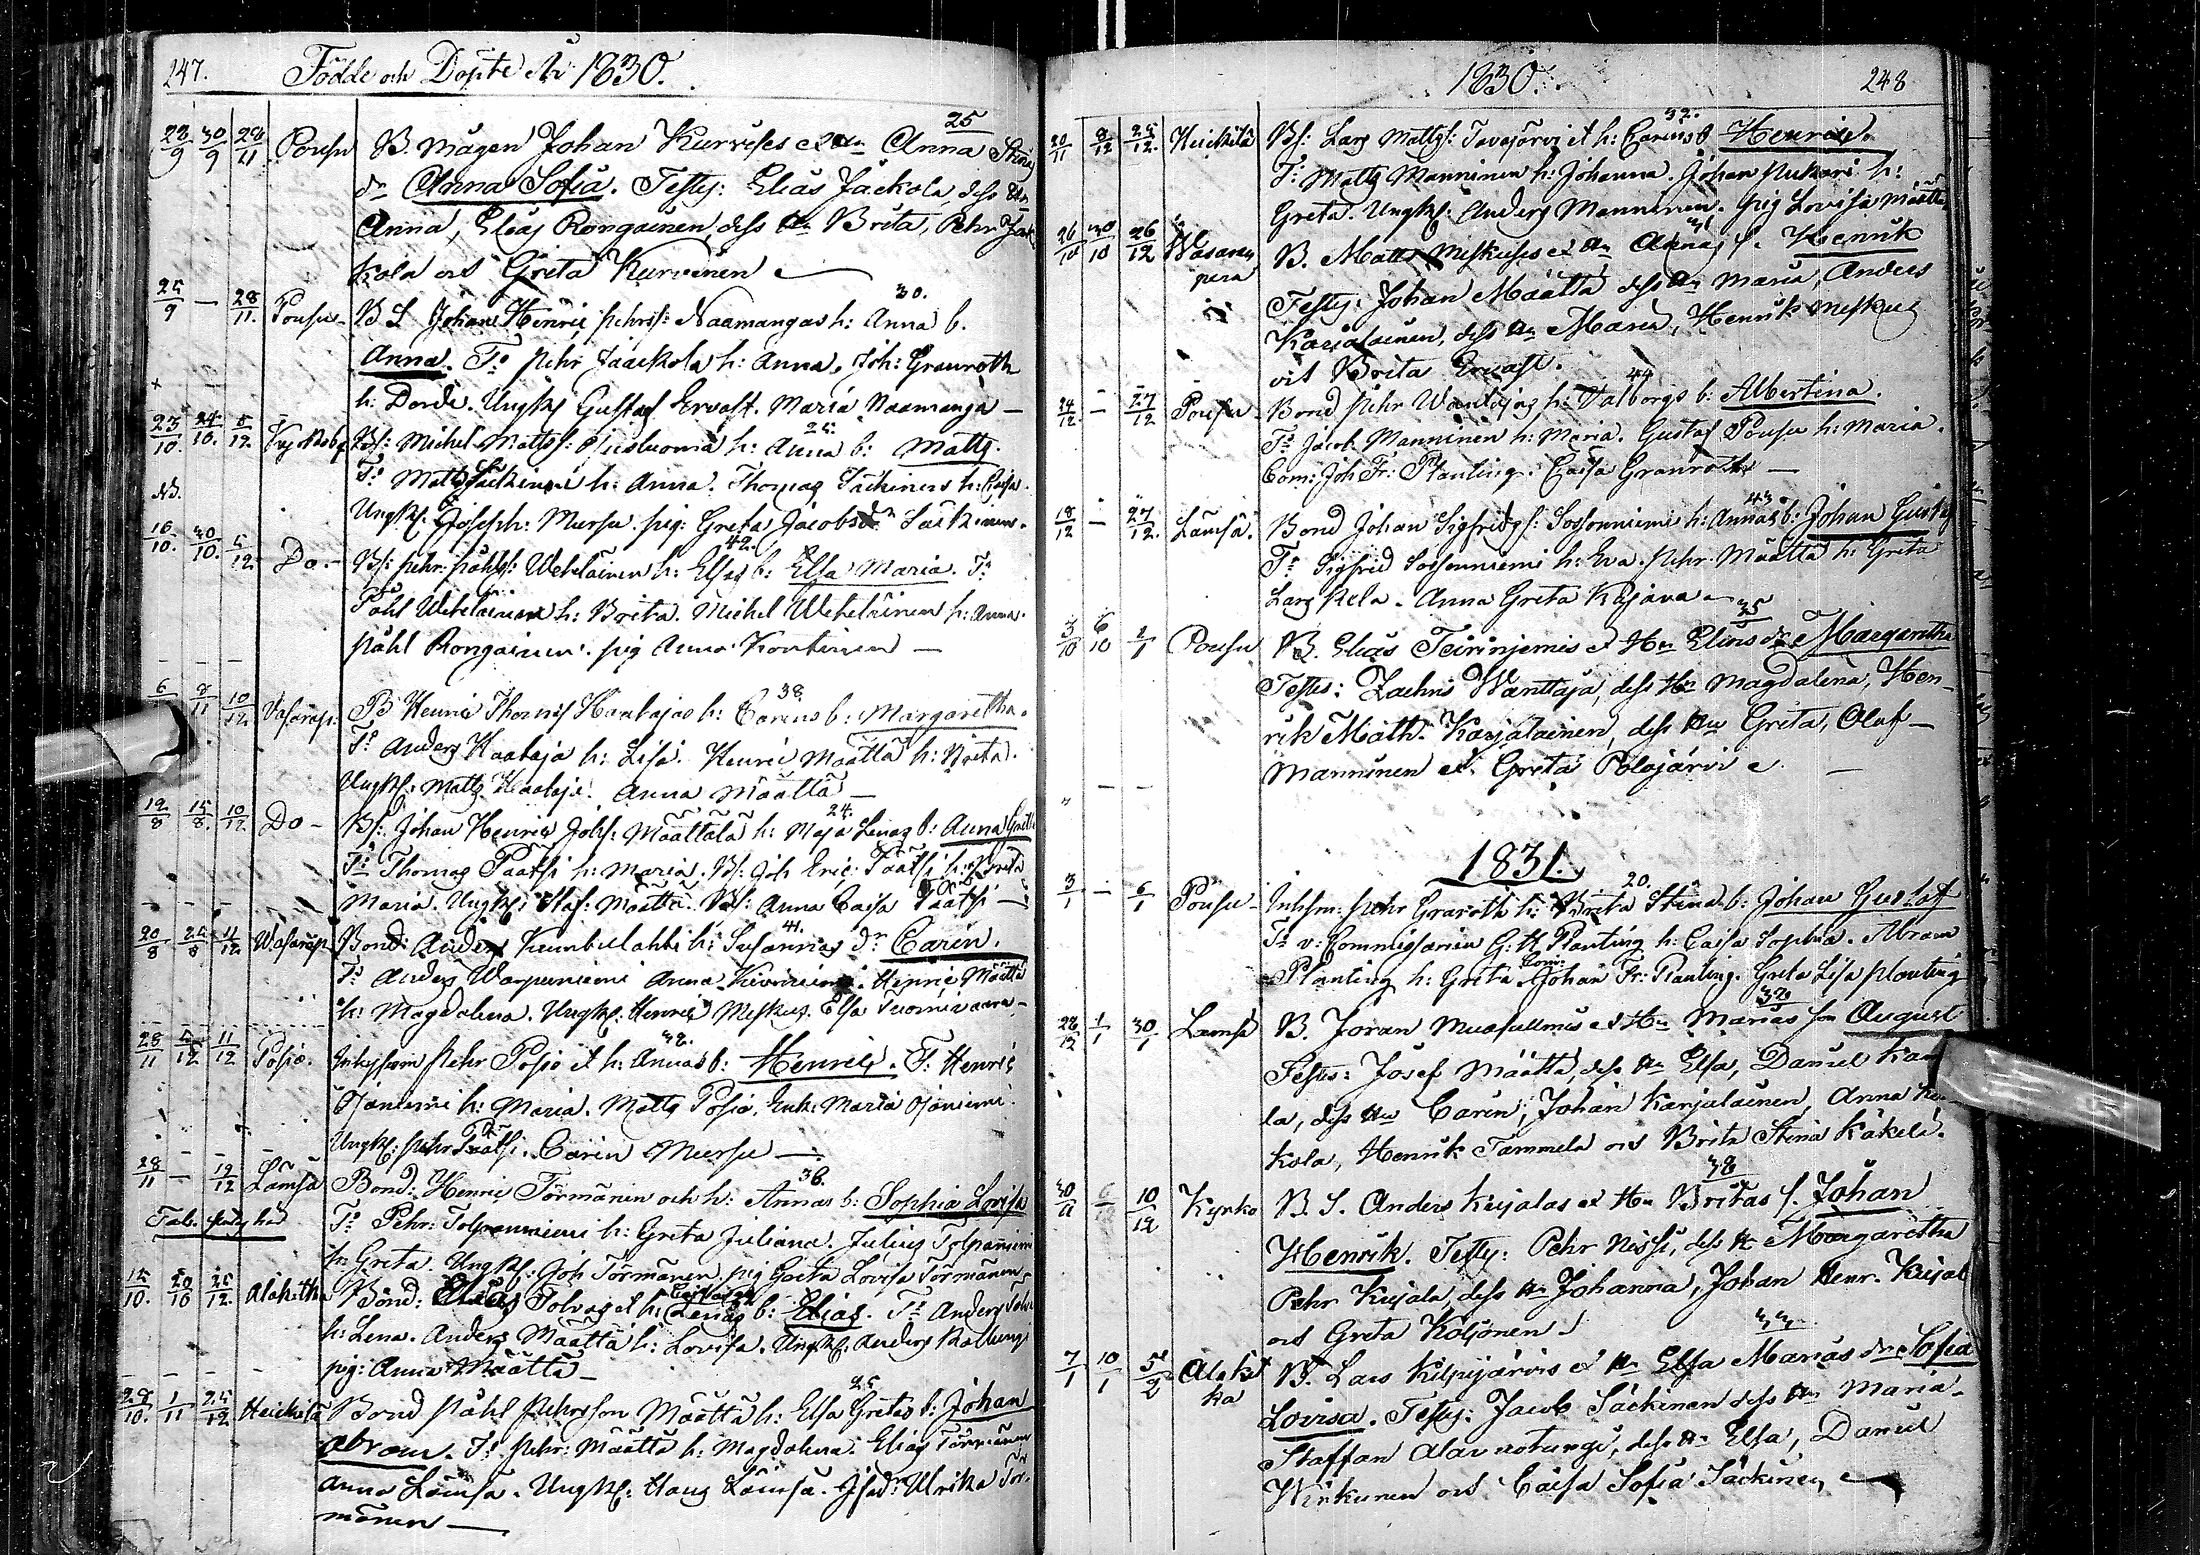 247. Födde och Döpte År 1830.
22/9 30/9 28/11 Pousu B. Mågen Johan Kurvises et Hu Anna Stinas 25
dr Anna Sofia. Testes: Elias Jackola, dess Hu
Anna, Elias Rongainen, dess Hu Brita, Pehr Jac
kola och Greta Kurvinen
25/9 — 28/11. Pousu B S Johan Henric Pehrss: Naamangas h: Anna b. 30.
Anna. T: Pehr Jaackola h: Anna. Joh: Granroth
h: Dorde. Ungk: Gustaf Ervast. Maria Naamanga —
23/10. 24/10. 5/12. Kyrkoby Bs: Michel Mattss: h: Anna b: Matts. 25.
T: Matts Säckinen h: Anna. Thomas Säckinens h: Caisa.
NB.
Ungk: Joseph: Mursu. pig: Greta Jacobsdr Säckinen.
16/10. 30/10. 5/12. Do.— Bs: Pehr: Påhls: Weheläinen h: Elsas b: Elsa Maria. T: 42.
Påhl Weheläinen h: Brita. Michel Weheläinen h: Anna.
Påhl Rongainen. pig Anna Kontinen —
6/ 8/11 10/12 Vasarap. B Henric Thomss Haatajas h: Carins b: Margaretha. 38.
T: Anders Haataja h: Lisa. Henric Määttä h: Brita.
Ungk: Matts Haataja. Anna Määttä —
12/8 15/8. 10/12. Do — Bs: Johan Henric Johss: Määttälä h: Maja Lenas b: Anna Greta 24.
T: Thomas Päätsi h: Maria. Bs: Joh Eric: Päätsi h: Greta
Maria. Ungk: Staf: Määttä. Anna Caisa Päätsi —
20/8 24/8 11/12 Wasarap Bond: Anders Kumbulahti h: Susannas dr Carin. 41.
T: Anders Warpuniemi Anna Kiviniemi. Henric Määttä
h: Magdalena. Ungk: Henric Meskus. Elsa Tuorniwaara —
28/11 5/12 11/12 Posio. Inhyssem Pehr Posio et h: Annas b: Henric. T: Henric 32.
Ojaniemi h: Maria. Matts Posio, Enk: Maria Ojaniemi.
Ungk: Pehr Päätsi. Carin Mursu —
28/11 — 19/12 Lämsä Bond: Henric Törmänen och h: Annas b: Sophia Lovisa 36.
T: Pehr: Tolpanniemi h: Greta Juliana. Julius Tolpaniemi
h: Greta. Ungk: Joh Törmänen. pig Greta Lovisa Törmänen
12/10. 20/10 25/12. Alakitka Bond: Elias Tolvas et h: Lenas b: Elias. T: Anders Tolva
h: Lena. Anders Määttä h: Lovisa. Ungk: Anders
pig: Anna Määttä —
29/10. 1/11 25/12 Heickilä Bond Påhl Pehrsson Määttä h: Elsa Gretas b: Johan 25
Abram. T: Pehr: Määttä h: Magdalena. Elias Törmänen
Anna Lämsä. Ungk: Hans Lämsä. Ulrika Tör-
mänen —
1830. 248
20/11 8/12 25/12. Heickilä Bs: Lars Matts: Tavajärvi et h: Carins b Henric. 32.
T: Matts Manninen h: Johanna. Johan Pukari h:
Greta. Ungk: Anders Manninen. pig Lovisa Määttä
26/10 30/10 26/12 Wasara B. Matts Meskuses et Hu Annas s. Henrik
pera
Testes: Johan Määttä dess Hu Maria, Anders
Karjalainen, dess Hu Maria, Henrik Meskus
och Brita Ervast.
24/12. — 27/12 Pousu Bond Pehr Wänttäjas h: Valborgs b: Albertina. 44
T: Jacob Manninen h: Maria. Gustaf Pousu h: Maria.
Com: Joh Fr: Planting. Caisa Granroth —
18/12 — 27/12. Lämsä. Bond Johan Sigfrids: Sossonniemi h: Annas b: Johan Gustaf 43.
T: Sigfrid Sossonniemi h: Eva. Pehr: Määttä h: Greta
Lars Kela. Anna Greta Kajava —
3/10 6/10 2/1 Pousu B. Elias Teiriniemis et Hu Elins dr Margaretha 35
Testes: Zachris Wänttäjä, dess Hu Magdalena, Hen-
rik Math. Karjalainen, dess Hu Greta, Olof —
Manninen et Greta Polojärvi
1831.
3/1 — 6/1 Pousu Inhsm: Pehr Granroth h: Brita Stinas b: Johan Gustaf 20.
T: v: Commissarien G: H Planting h: Caisa Sophia. Abram
Planting h: Greta. Com: Johan Fr: Planting. Greta Lisa Planting
28/12 1/1 30/1 Lämsä B. Joran et Hu Marias son August 32
Testes: Josef Määttä, dess Hu Elsa, Daniel Kau
la, dess Hu Carin, Johan Karjalainen, Anna
kola, Henrik Tammela och Brita Stina Käkelä.
30/11 10/12 Kyrko B. S. Anders Kujalas et Hu Britas s. Johan 38
Henrik. Testes: Pehr Nissi, dess H Margaretha
Pehr Kujala, dess Hu Johanna, Johan Henr. Kujal
och Greta Koljonen
7/1 10/1 5/2 Alakit B. Lars Kilpijärvis et Hu Elsa Marias dr Sofia
ka
Lovisa. Testes: Jacob Säckinen dess Hu Maria
Staffan, dess Hu Elsa, Daniel
Wirkunen och Caisa Sofia Säckinen